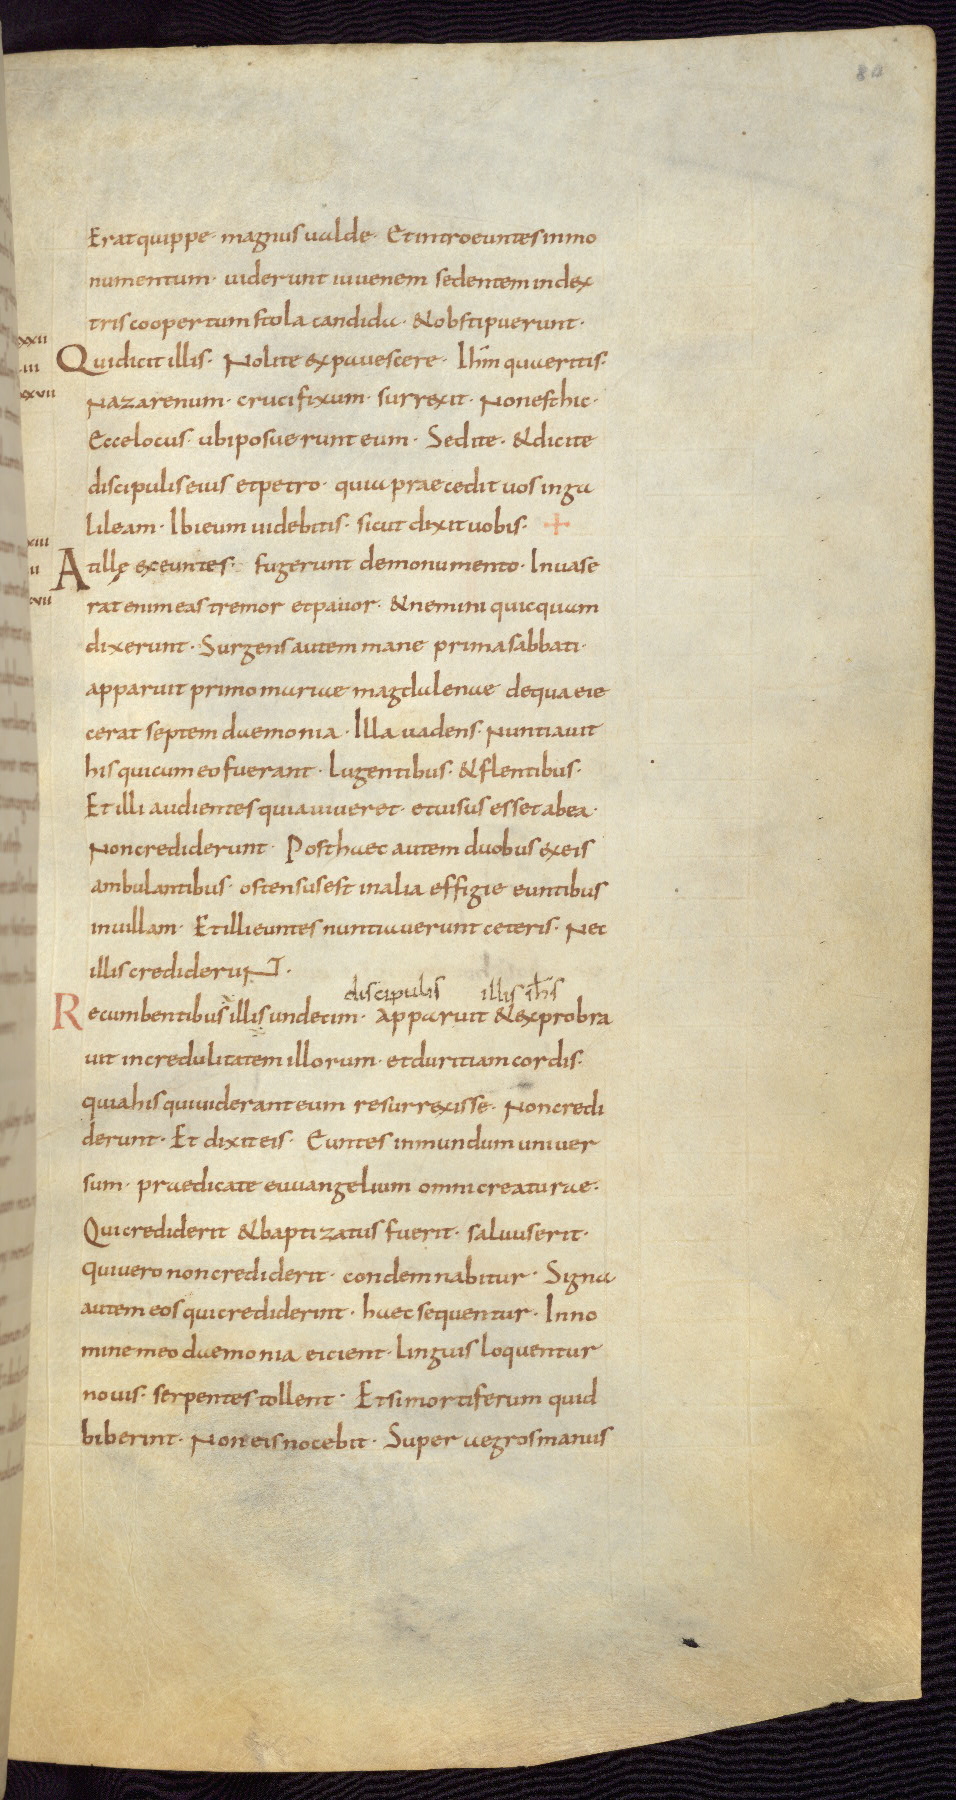 80
Erat quippe · magnus ualde · Et introeuntes in mo
numentum · uiderunt iuuenem sedentem in dex
tris coopertum stola candida · & obstipuerunt ·
Qui dicit illis · Nolite expauescere · Ihm̄ quaeritis ·
Nazarenum · crucifixum · surrexit · Non est hic ·
Ecce locus · ubi posuerunt eum · Sed ite · & dicite
discipulis eius et petro · quia praecedit uos in ga
lileam · Ibi eum uidebitis · sicut dixit uobis · +
At illę exeuntes · fugerunt de monumento · Inuase
rat enim eas tremor et pauor · & nemini quicquam
dixerunt · Surgens autem mane prima sabbati ·
apparuit primo mariae magdalenae de qua eie
cerat septem daemonia · Illa uadens · Nuntiauit
his qui cum eo fuerant · Lugentibus · & flentibus ·
Et illi audientes quia uiueret · et uisus esset ab ea ·
Non crediderunt · Post haec autem duobus ex eis
ambulantibus · ostensus est in alia effigie euntibus
in uillam · Et illi euntes nuntiauerunt ceteris · Nec
illis crediderunt ·
discipulis illis ihs̄
Recumbentibus illis undecim · Apparuit & exprobra
uit incredulitatem illorum · et duritiam cordis ·
quia his qui uiderant eum resurrexisse · Non credi
derunt · Et dixit eis · Euntes in mundum uniuer
sum · praedicate euuangelium omni creaturae ·
Qui crediderit & baptizatus fuerit · saluus erit ·
qui uero non crediderit · condemnabitur · Signa
autem eos qui crediderint · haec sequentur · In no
mine meo daemonia eicient · Linguis loquentur
nouis · serpentes tollent · Et si mortiferum quid
biberint · Non eis nocebit · Super aegros manus